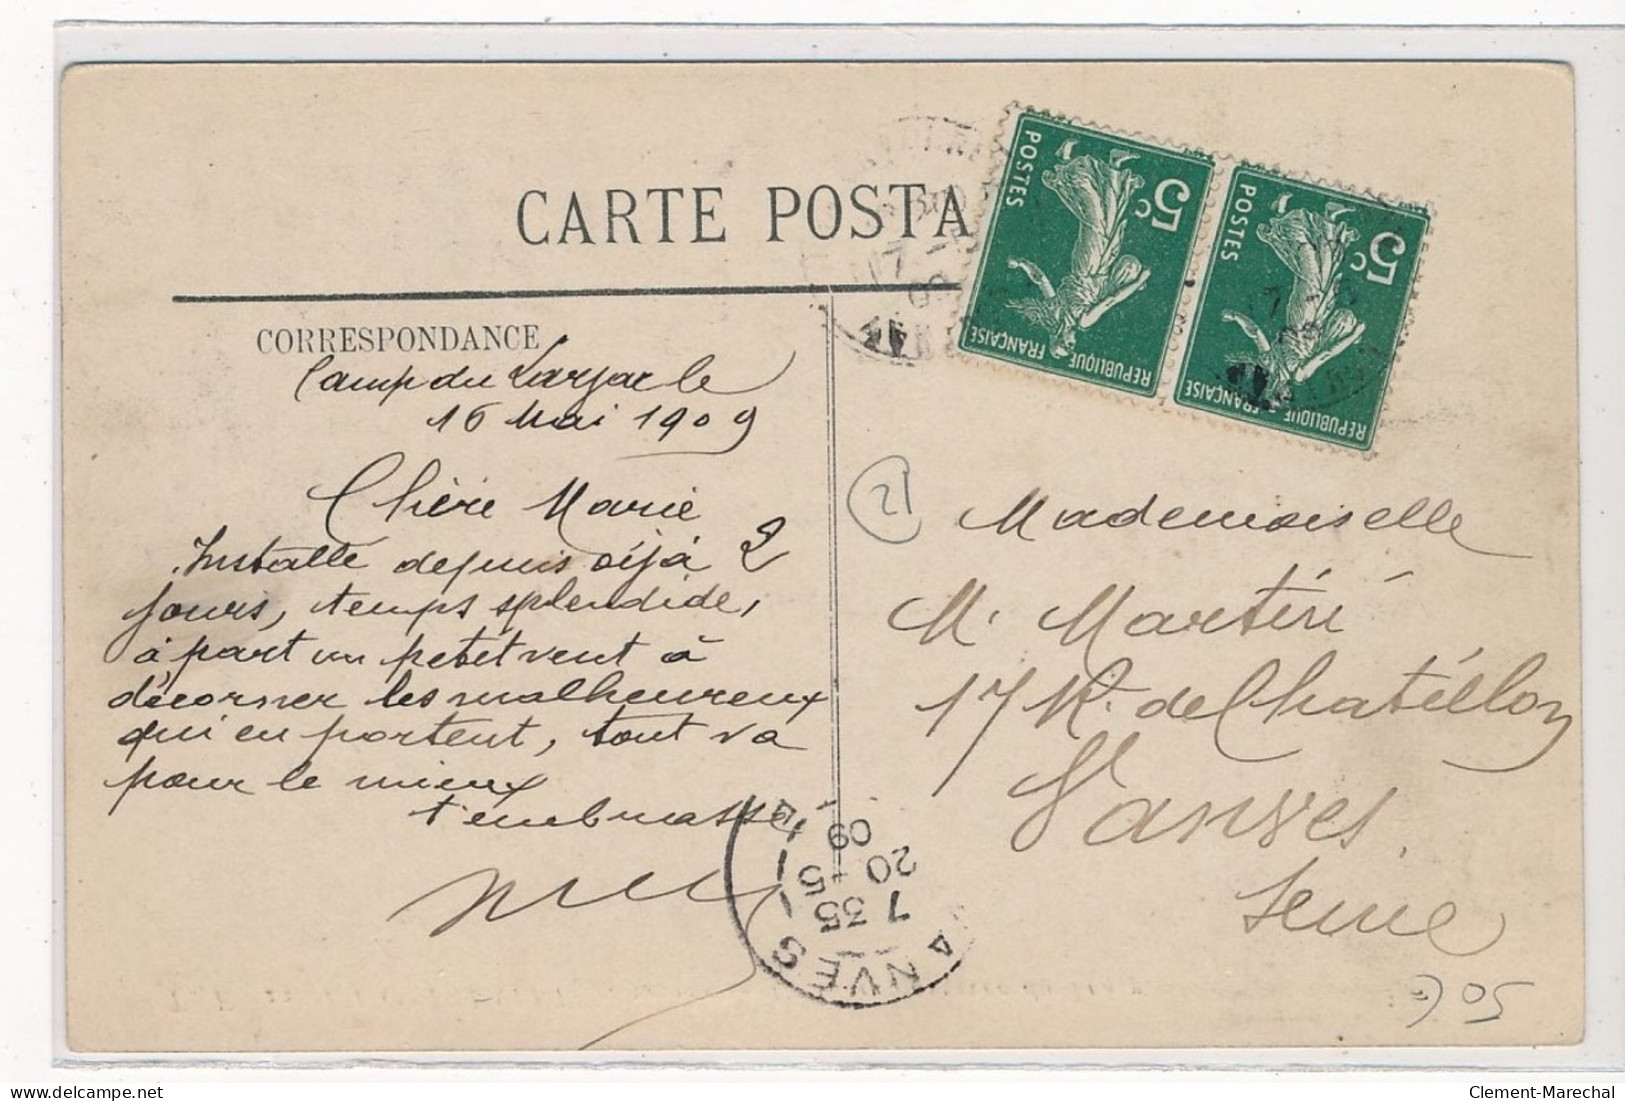 CARTE POSTA
CORRESPONDANCE
Camp du Larzac le
16 Mai 1909
Chère Marie
Installe depuis déjà 2
jours, temps splendide,
à part un petit vent à
décorner les malheureux
qui en portent, tout va
pour le mieux
t'embrasse
5c
POSTES
REPUBLIQUE FRANÇAISE
5c
POSTES
REPUBLIQUE FRANÇAISE
21
Mademoiselle
M. Martini
17 R. de Chatillon
Vanves
Seine
VANVES
7 35
20 -5
09
delcampe.net
Clement-Marechal